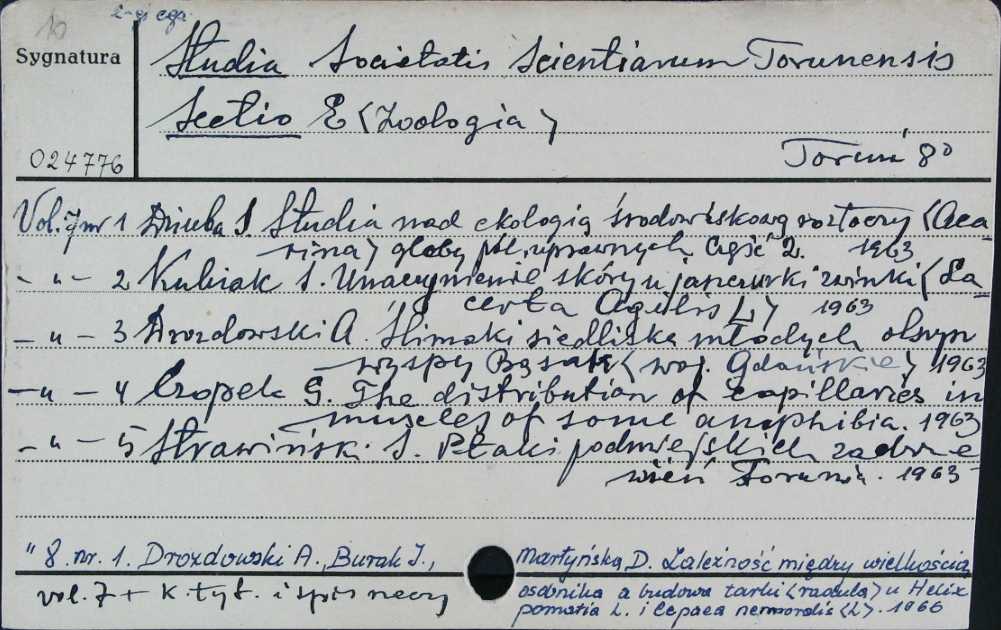 2-gi egz.
Sygnatura
Studia Societatis Scientiarum Torunensis
Sectio E <Zoologia>
024776
Toruń 8°
Vol. 7 nr 1 Dziuba S. Studia nad ekologią środowiskową roztoczy <Aca-
rina> gleby pól uprawnych. Część 2. 1963
-"- 2 Kubiak S. Unaczynienie skóry u jaszczurki zwinki <La-
certa Agilis L> 1963
-"- 3 Drozdowski A. Ślimaki siedliska młodych
wyspy <woj. Gdańskie> 1963
-"- 4 Czopek G. The distribution of capillaries in
muscles of some amphibia. 1963
-"- 5 Strawiński S. Ptaki podmiejskich zadrze
wień Torunia. 1963
" 8. nr. 1. Drozdowski A., Burak J., Martyńska D. Zależność między wielkością
osobnika a budowa tarki <radula> u Helix
pomatia L. i Cepaea nemordis <L>. 1966
vol. 7 + k. tyt. i spis rzeczy